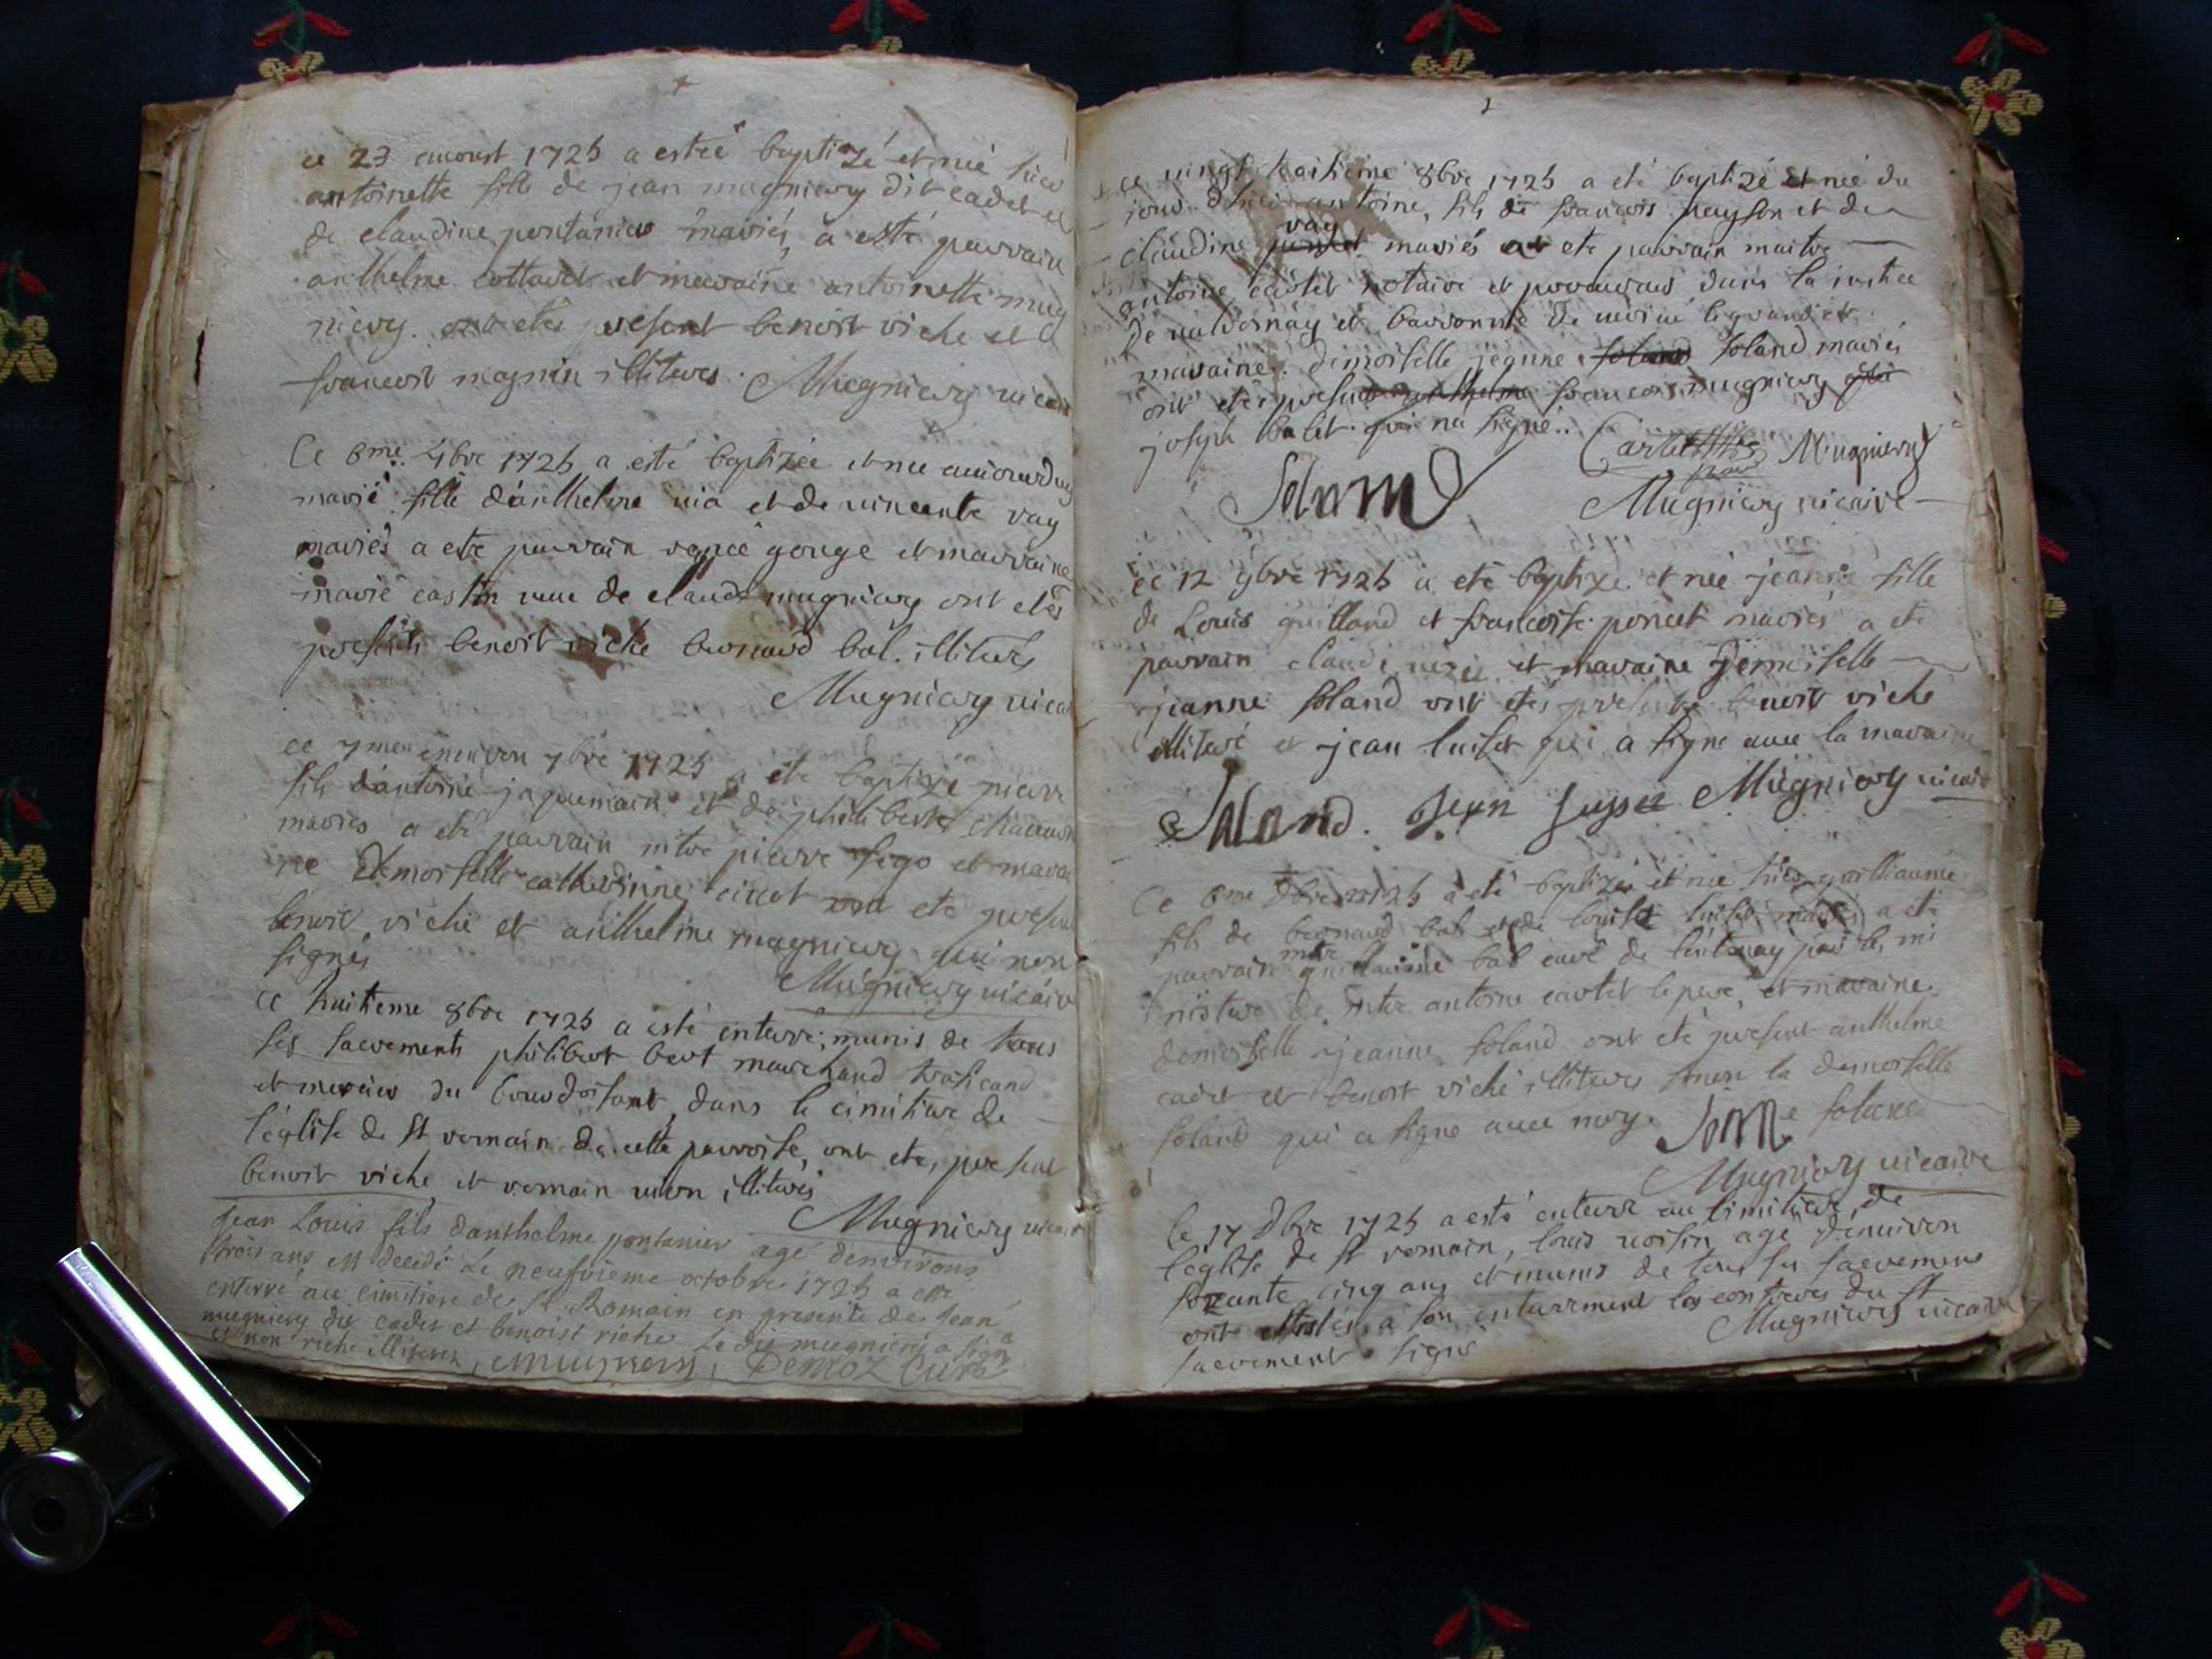 ce 23 auoust 1725 a esteé baptizé et neé hier
antoinette fille de jean mugniery dit cadet et
de claudine pontanier mariés, a esté parrain
anthelme cottaret et maraine antoinette mug
niery. ont etés present benoit riche et
francois magnin illiteres. Mugniery uicaire
Ce 6me 7bre 1725 a esté baptizée et nee auiourduy
marie fille d'anthelme uia et de uincente ray
mariés a eté parrain gouge et marraine
marie castin uue de claude mugniery ont etés
presents benoit riche bernard bal. illiterés
Mugniery uicai
ce 7me enuiron 7bre 1725 a eté baptizé pierre
fils d'antoine jaquemain et de philiberte
mariés a eté parrain mtre pierre sego et marai
ne demoiselle catherinne ont eté present
benoit riche et anthelme mugniery qui non
signés
Mugniery uicaire
ce huitieme 8bre 1725 a esté enterré; munis de tous
ses sacrements philibert bert marchand traficand
et mercier du bourdoisant, dans le cimitiere de
l'église de st romain de cette parroise, ont eté, present
benoit riche, et romain illiterés
Mugniery uicaire
jean Louis fils danthelme pontanier agé denuirons
trois ans est decedé Le neufvieme octobre 1725 a eté
enterré au cimitiere de St Romain en presence de Jean
mugniery dit cadet et benoist riche le dit mugniery a signé
et non riche illiteré, mugniery, Demoz Curé
ce uingt huitieme 8bre 1725 a eté baptizé et neé du
jour d'hier antoine, fils de francois payson et de
claudine ray mariés a eté parrain maitre
antoine cartet notaire et procureur dans la justice
de ualdornay et barronnie de
maraine. demoiselle jeanne soland mariés
ont etés present francois mugniery
joseph balet qui na signé..
Cartet Mugniery
Soland
Mugniery uicaire
ce 12 9bre 1725 a eté baptizé et neé jeanne fille
de Louis guilland et francoise poncet mariés a eté
parrain claude et maraine demoiselle
jeanne soland ont etés presents benoit riche
illiteré et jean luiset qui a signe auec la maraine
Soland. Jean Mugniery uicaire
Ce 6me Xbre 1725 a eté baptizé et neé hier guilliaume
fils de bernard bal et de louise luiset mariés a eté
parrain mtre guillaume bal curé de lintenay par le mi
nistere de mtre antoine cartet le pere, et maraine
demoiselle jeanne soland ont eté present anthelme
cadet et benoit riche illiteres sinon la demoiselle
soland qui a signe auec moy. soland
Mugniery uicaire
le 17 Xbre 1725 a esté enterré au cimitiere de
l'eglise de st romain, louis uoisin agé denuiron
soixante cinq ans et munis de tous ses sacrements
ont assistés a son enterrement les confreres du st
sacrement signé Mugniery uicaire